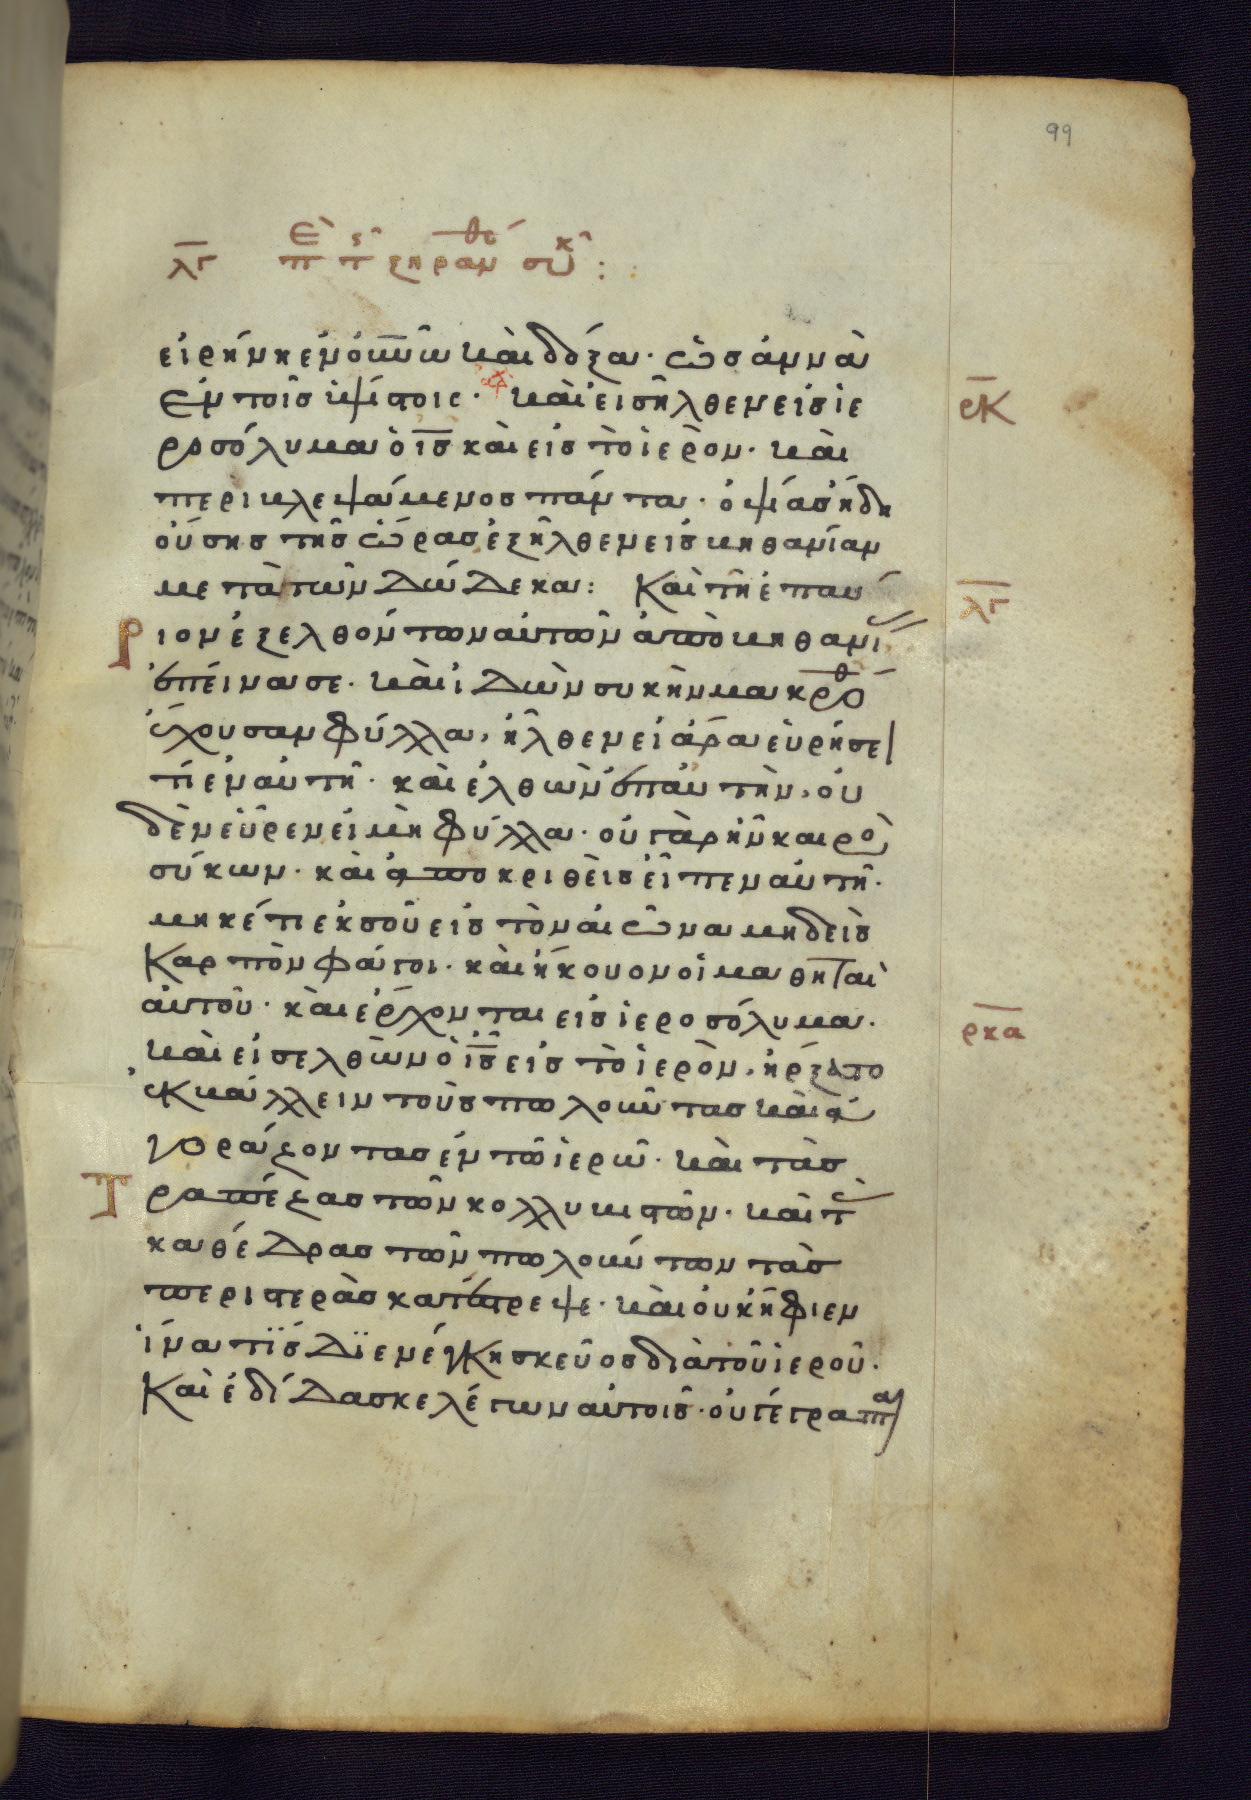 99
λγ περὶ τῆς ξηρανθείσης συκῆς :
εἰρήνη ἐν οὐ̅ν̅ω̅ καὶ δόξα · ὡσάννα
ἐν τοῖς ὑψίστοις · καὶ εἰσῆλθεν εἰς ἱε
ρκ
ροσόλυμα ὁ ι̅ς̅ καὶ εἰς τὸ ἱερὸν · καὶ
περιβλεψάμενος πάντα · ὀψίας ἤδη
οὔσης τῆς ὥρας ἐξῆλθεν εἰς βηθανίαν
μετὰ τῶν δώδεκα : Καὶ τῆ ἐπαύ
λγ
ριον ἐξελθόντων αὐτῶν ἀπὸ βηθανί
ἐπείνασε · καὶ ἰδὼν συκῆν μακρόθ
ἔχουσαν φύλλα, ἦλθεν εἰ ἄρα εὑρήσει
τί ἐν αὐτῆ · καὶ ἐλθὼν ἐπ αὐτὴν, οὐ
δὲν εὗρεν εἰ μὴ φύλλα · οὐ γὰρ ἦν καιρὸ
σύκων · καὶ ἀποκριθεὶς εἶπεν αὐτῆ ·
μηκέτι ἐκ σοῦ εἰς τὸν αἰῶνα μηδεὶς
Καρπὸν φάγοι · καὶ ἤκουον οἱ μαθηταὶ
αὐτοῦ · καὶ ἔρχονται εἰς ἱεροσόλυμα ·
ρκα
καὶ εἰσελθὼν ὁ ι̅ς̅ εἰς τὸ ἱερὸν, ἤρξατο
ἐκβάλλειν τοὺς πωλοῦντας καὶ ἀ
γοράζοντας ἐν τῶ ἱερῶ · καὶ τὰς
Τραπέζας τῶν κολλυβιστῶν · καὶ τ
καθέδρας τῶν πωλούντων τὰς
περιστερὰς κατέστρεψε · καὶ οὐκ ἤφιεν
ἵνα τῒς δϊενέγκη σκεῦος διὰ τοῦ ἱεροῦ ·
Καὶ ἐδίδασκε λέγων αὐτοῖς · οὐ γέγραπτ